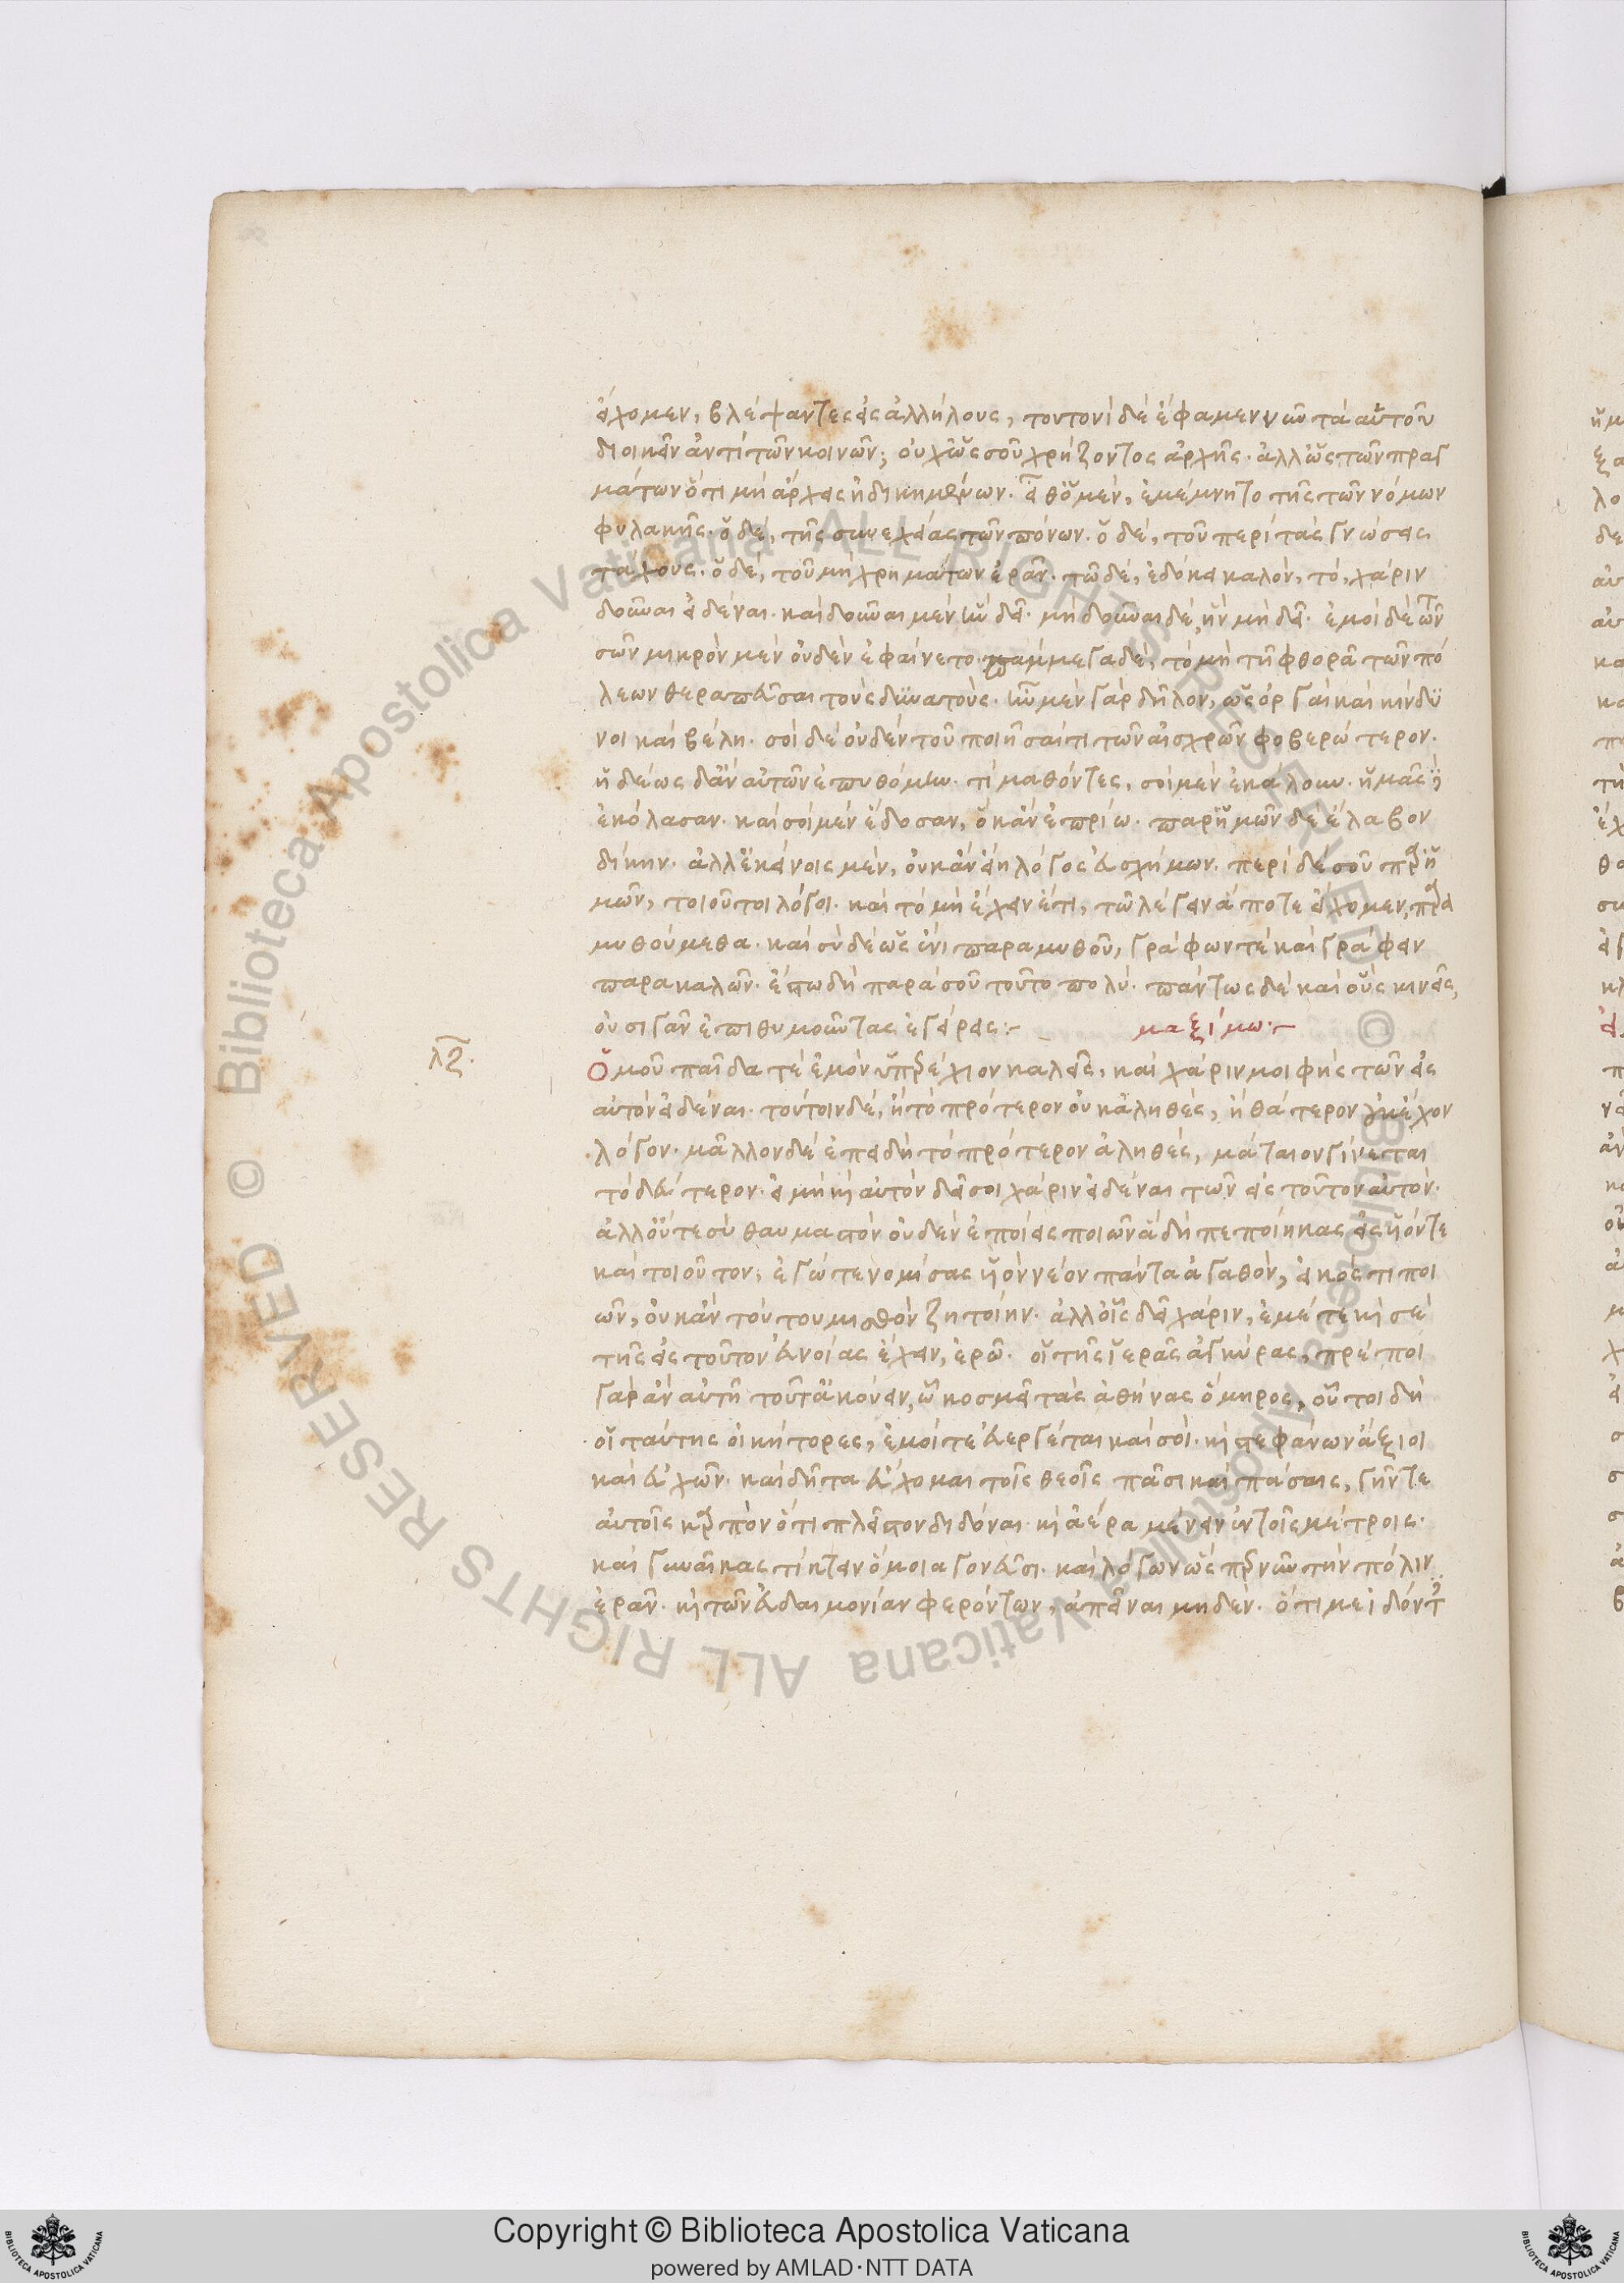 εἴχομεν, βλέψαντες εἰς ἀλλήλους, τουτονὶ δὲ ἔφαμεν νῦν τὰ αὐτοῦ
διοικεῖν ἀντὶ τῶν κοινῶν; οὐχ ὡς σοῦ χρήζοντος ἀρχῆς. ἀλλ' ὡς τῶν πραγ
μάτων ὅτι μὴ ἄρχεις ἠδικημένων. εἶθ' ὁ μὲν, ἐμέμνητο τῆς τῶν νόμων
φυλακῆς. ὁ δὲ, τῆς συνεχείας τῶν πόνων. ὁ δὲ, τοῦ περὶ τὰς γνώσεις
τάχους. ὁ δὲ, τοῦ μὴ χρημάτων ἐρᾶν. τῷ δὲ, ἐδόκει καλὸν, τὸ, χάριν
δοῦναι εἰδέναι. καὶ δοῦναι μὲν ἣν δεῖ. μὴ δοῦναι δὲ, ἣν μὴ δεῖ. ἐμοὶ δὲ τῶν
σῶν μικρὸν μὲν οὐδὲν ἐφαίνετο. παμμέγα δὲ, τὸ μὴ τῇ φθορᾷ τῶν πό
λεων θεραπεῦσαι τοὺς δυνατούς. ἦν μὲν γὰρ δῆλον, ὡς ὀργαὶ καὶ κίνδυ
νοι καὶ βέλη. σοὶ δὲ οὐδὲν τοῦ ποιῆσαί τι τῶν αἰσχρῶν φοβερώτερον.
ἡδέως δ' ἂν αὐτῶν ἐπυθόμην. τί μαθόντες, σοὶ μὲν ἐκάλουν. ἡμᾶς δὲ
ἐκόλασαν. καὶ σοὶ μὲν ἔδοσαν, ὃ κἂν ἐπρίω. παρ' ἡμῶν δὲ ἔλαβον
δίκην. ἀλλ' ἐκείνοις μὲν, οὐκ ἂν εἴη λόγος εὐσχήμων. περὶ δὲ σοῦ παρ' ἡ
μῶν, τοιοῦτοι λόγοι. καὶ τὸ μὴ ἔχειν ἔτι, τῷ λέγειν ἅ ποτε εἴχομεν, παρα
μυθούμεθα. καὶ σὺ δὲ ὡς ἔνι παραμυθοῦ, γράφων τε καὶ γράφειν
παρακαλῶν. ἔστω δὴ παρὰ σοῦ τοῦτο πολύ. πάντως δὲ καὶ οὓς κινεῖς,
οὐ σιγᾶν ἐπιθυμοῦντας ἐγείρεις:- μαξίμω:-
λζ.
Ὁμοῦ παῖδά τε ἐμὸν ὑπερέχιον καλεῖς, καὶ χάριν μοι φῂς τῶν εἰς
αὐτὸν εἰδέναι. τούτοιν δὲ, ἢ τὸ πρότερον οὐκ ἀληθές, ἢ θάτερον οὐκ ἔχον
λόγον. μᾶλλον δὲ ἐπειδὴ τὸ πρότερον ἀληθές, μάταιον γίνεται
τὸ δεύτερον. εἰ μὴ καὶ αὐτὸν δεῖ σοι χάριν εἰδέναι τῶν εἰς τοῦτον αὐτόν.
ἀλλ' οὔτε σὺ θαυμαστὸν οὐδὲν ἐποίεις ποιῶν ἃ δὴ πεποίηκας εἰς υἱόν τε
καὶ τοιοῦτον; ἐγώ τε νομίσας υἱὸν νέον πάντα ἀγαθὸν, εἰκός τι ποι
ῶν, οὐκ ἂν τούτου μισθὸν ζητοίην. ἀλλ' οἷς δεῖ χάριν, ἐμέ τε καὶ σὲ
τῆς εἰς τοῦτον εὐνοίας ἔχειν, ἐρῶ. οἱ τῆς ἱερᾶς ἀγκύρας, πρέποι
γὰρ ἂν αὐτῇ τοῦτ' ἀκούειν, ᾧ κοσμεῖ τὰς ἀθήνας ὅμηρος, οὗτοι δὴ
οἱ ταύτης οἰκήτορες, ἐμοί τε εὐεργέται καὶ σοί. καὶ στεφάνων ἄξιοι
καὶ εὐχῶν. καὶ δῆτα εὔχομαι τοῖς θεοῖς πᾶσι καὶ πάσαις, γῆν τε
αὐτοῖς καρπὸν ὅτι πλεῖστον διδόναι. καὶ ἀέρα μένειν ἐν τοῖς μέτροις.
καὶ γυναῖκας τίκτειν ὅμοια γονεῦσι. καὶ λόγων ὥσπερ νῦν τὴν πόλιν
ἐρᾶν. καὶ τῶν εὐδαιμονίαν φερόντων, ἀπεῖναι μηδέν. ὅτι με ἰδόντες